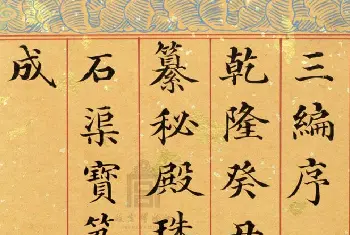 三編序
乾隆癸丑
纂秘殿珠
石渠寶笈
成